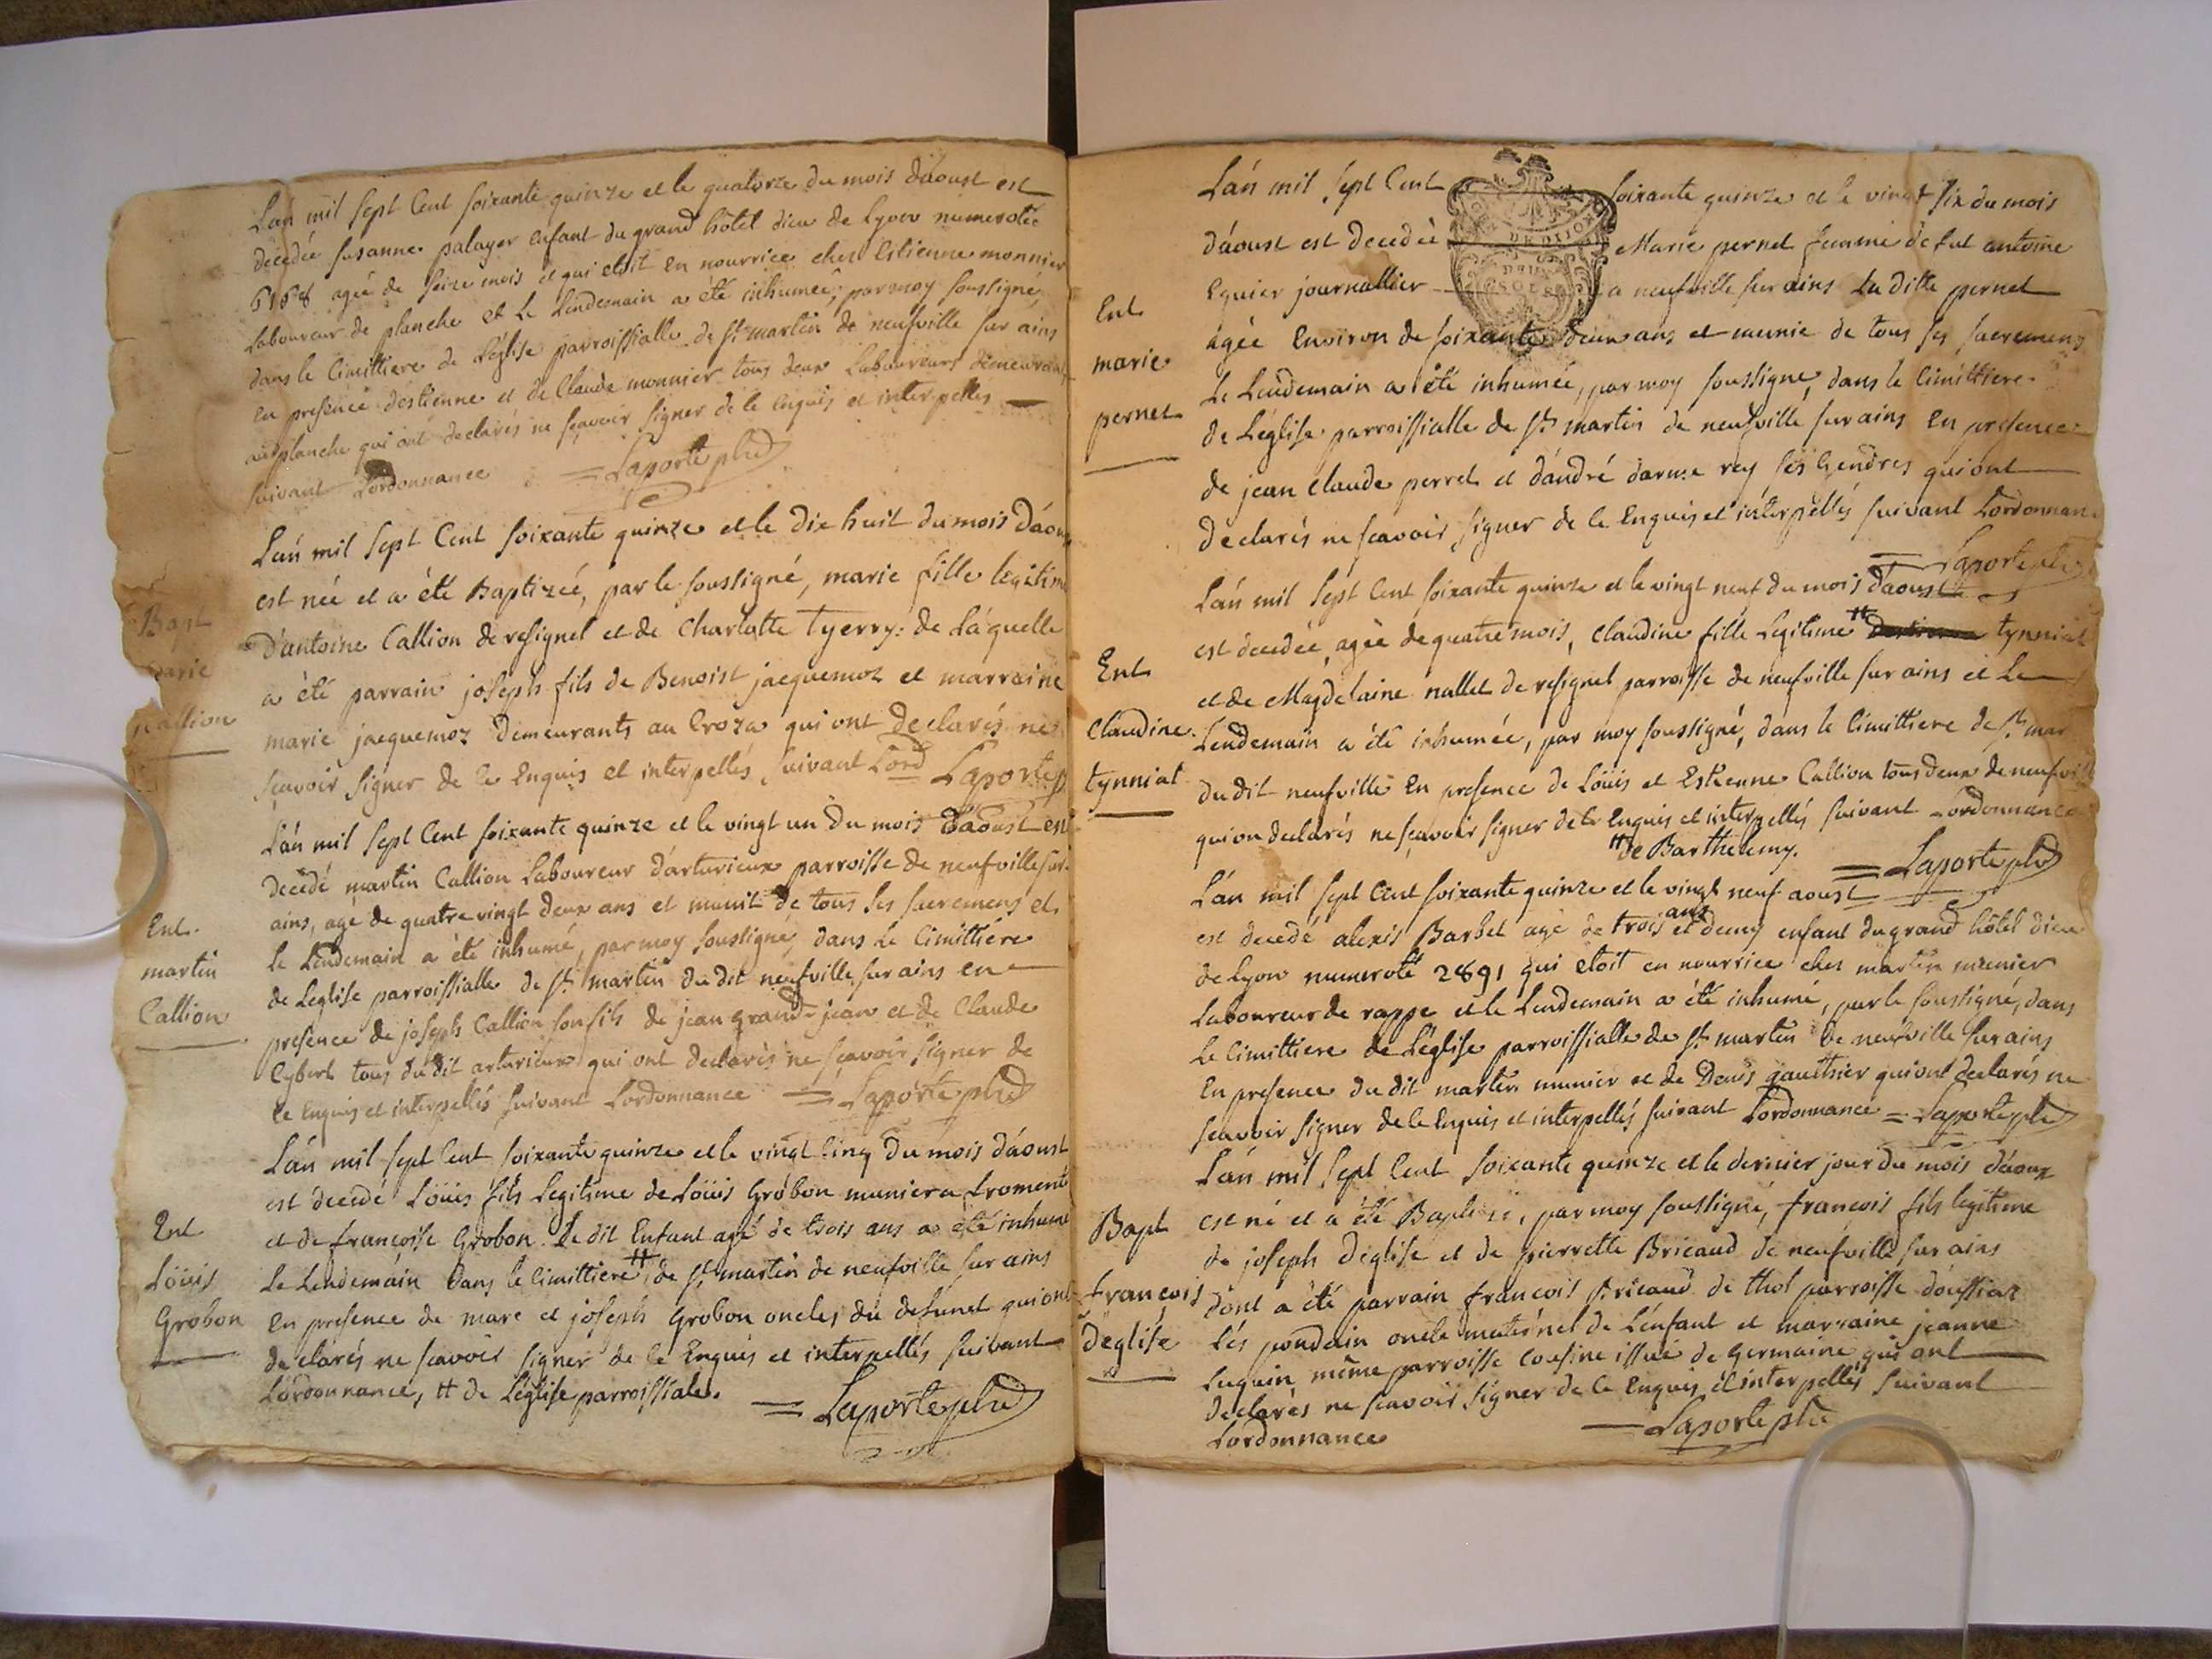 L'an mil sept Cent soixante quinze et le quatorze du mois d'aoust est
decedée susanne palayer enfant du grand hôtel dieu de Lyon numerotée
agée de seize mois et qui etoit en nourrice chez Estienne monnier
Laboureur de planche et Le Lendemain a été inhumée, par moy soussigné,
dans le Cimittiere de L'église parroissialle de st martin de neufville sur ains
en presence d'estienne et de Claude monnier tous deux Laboureurs demeurants
au planche qui ont declarés ne sçavoir signer de ce enquis et interpellés
suivant L'ordonnance = Laporte ptre
Bapt
marie
Callion
L'an mil sept Cent soixante quinze et le dix huit du mois d'aoust
est née et a été Baptizée, par le soussigné, marie fille legitime
d'antoine Callion de resignel et de Charlotte Tyerry: de Laquelle
a été parrain joseph fils de Benoist jacquemoz et marraine
marie jacquemoz demeurants au Croza qui ont declarés ne
sçavoir signer de ce enquis et interpellés suivant L'ord Laporte p
Ent.
martin
Callion
L'an mil sept Cent soixante quinze et le vingt un du mois d'aoust est
decedé martin Callion Laboureur d'arturieux parroisse de neufville sur
ains, agé de quatre vingt deux ans et munit de tous ses sacremens et
le Lendemain a été inhumé, par moy soussigné, dans le Cimittiére
de Leglise parroissialle de st martin du dit neufville sur ains en
presence de joseph Callion son fils de jean grand-jean et de Claude
Cybert tous du dit arturieux qui ont declarés ne sçavoir signer de
ce enquis et interpellés suivant L'ordonnance = Laporte ptre
Ent
Loüis
Grobon
L'an mil sept Cent soixante quinze et le vingt Cinq du mois d'aoust
est decedé Loüis fils Legitime de Loüis Grobon munier a fromenté
et de francoise Grobon. Le dit Enfant agé de trois ans a été inhumé
Le Lendemain dans le Cimittiere # de st martin de neufville sur ains
en presence de marc et joseph Grobon oncles du defunct qui ont
declarés ne sçavoir signer de ce enquis et interpellés suivant
L'ordonnance, # de L'église parroissiale. = Laporte ptre
DE DIJON
DEUX
SOLS
Ent
marie
pernet
L'an mil sept Cent soixante quinze et le vingt six du mois
d'aoust est decedée Marie pernet femme de fut antoine
Equier journallier a neufville sur ains La ditte pernet
agée Environ de soixante deux ans et munie de tous ses sacremens
Le Lendemain a été inhumée, par moy soussigné, dans le Cimittiere
de L'église parroissialle de st martin de neufville sur ains En presence
de jean Claude perret et d'andré rey ses Gendres qui ont
declarés ne sçavoir signer de ce enquis et interpellés suivant L'ordonnan
= Laporte ptre
Ent
Claudine
tynniat
L'an mil sept Cent soixante quinze et le vingt neuf du mois d'aoust
est decedée, agée de quatre mois, Claudine fille Legitime # tynniat
et de Magdelaine nallet de resignel parroisse de neufville sur ains et Le
Lendemain a été inhumée, par moy soussigné, dans le Cimittiere de st mar
du dit neufville En presence de Loüis et Estienne Callion tous deux de neufville
qui on declarés ne sçavoir signer de ce enquis et interpellés suivant L'ordonnance
# de Barthelemy. = Laporte ptre
L'an mil sept Cent soixante quinze et le vingt neuf aoust
est decedé alexis Barbet agé de trois ans et demy enfant du grand hôtel dieu
de Lyon numeroté 2891 qui etoit en nourrice chez martin munier
Laboureur de rappe et le Lendemain a été inhumé, par le soussigné, dans
Le Cimittiere de L'église parroissialle de st martin de neufville sur ains
En presence du dit martin munier et de Denis gauthier qui ont declarés ne
sçavoir signer de ce enquis et interpellés suivant L'ordonnance = Laporte ptre
Bapt
francois
d'eglise
L'an mil sept Cent soixante quinze et le dernier jour du mois d'aoux
est né et a été Baptizé, par moy soussigné, francois fils legitime
de joseph d'eglise et de pierrette Bricaud de neufville sur ains
dont a été parrain francois Bricaud de thol parroisse d'oussiaz
Lés pondain oncle maternel de L'enfant et marraine jeanne
Luguin même parroisse Cousine issue de Germaine, qui ont
declarés ne sçavoir signer de ce enquis et interpellés suivant
L'ordonnance = Laporte ptre